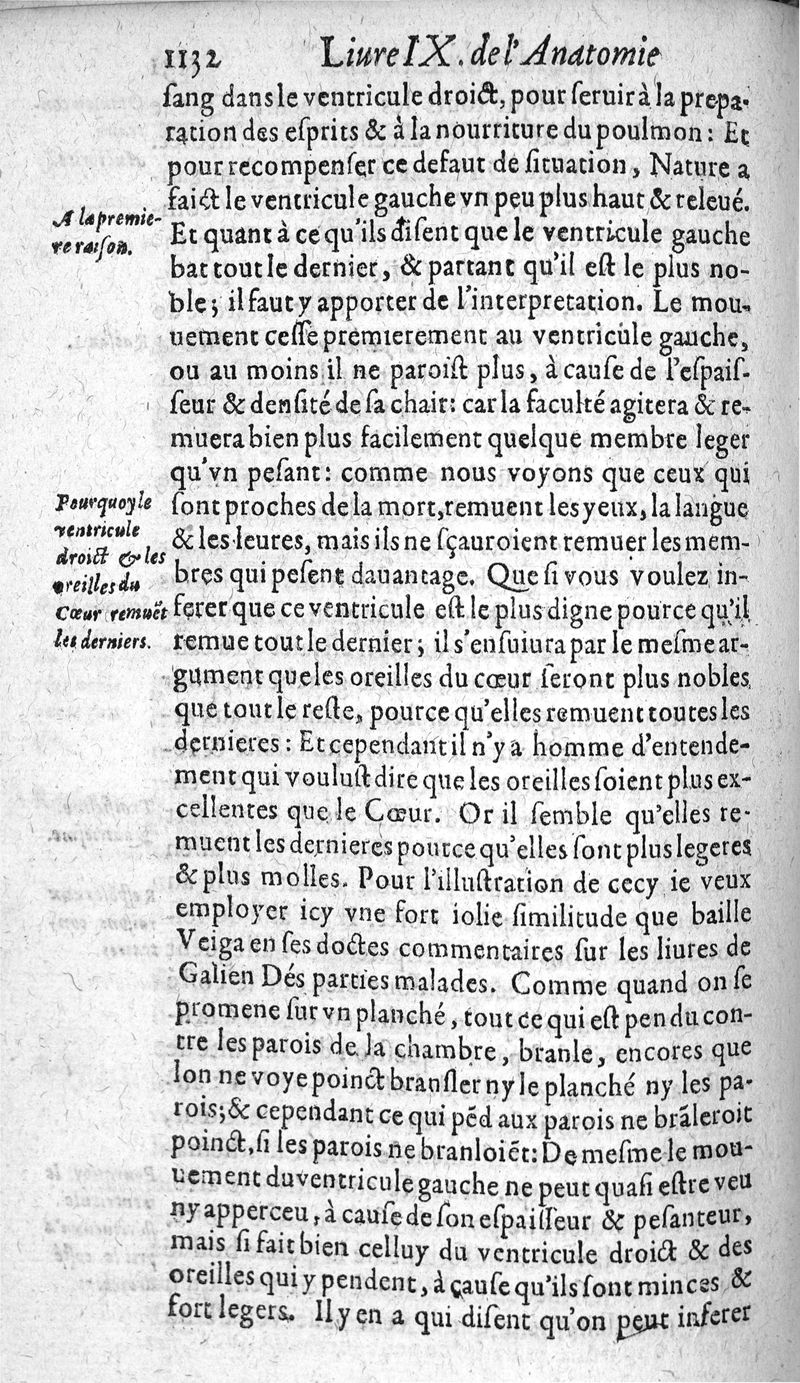 1132 Liure IX. de l'Anatomie
ſang dans le ventricule droict, pour ſeruir à la prepa-
ration des eſprits & à la nourriture du poulmon: Et
pour recompenſer ce defaut de ſituation, Nature a
faict le ventricule gauche vn peu plus haut & releué.
A la premie-
re raiſon.
Et quant à ce qu'ils diſent que le ventricule gauche
bat tout le dernier, & partant qu'il eſt le plus no-
ble; il faut y apporter de l'interpretation. Le mou-
uement ceſſe premierement au ventricule gauche,
ou au moins il ne paroiſt plus, à cauſe de l'eſpaiſ-
ſeur & denſité de ſa chair: car la faculté agitera & re-
muera bien plus facilement quelque membre leger
qu'vn peſant: comme nous voyons que ceux qui
Pourquoy le
ventricule
droict & les
oreilles du
Cœur remuẽt
les derniers.
ſont proches de la mort, remuent les yeux, la langue
& les leures, mais ils ne ſçauroient remuer les mem-
bres qui peſent dauantage. Que ſi vous voulez in-
ferer que ce ventricule eſt le plus digne pource qu'il
remue tout le dernier; il s'enſuiura par le meſme ar-
gument que les oreilles du cœur ſeront plus nobles
que tout le reſte, pource qu'elles remuent toutes les
dernieres: Et cependant il n'y a homme d'entende-
ment qui vouluſt dire que les oreilles ſoient plus ex-
cellentes que le Cœur. Or il ſemble qu'elles re-
muent les dernieres pource qu'elles ſont plus legeres
& plus molles. Pour l'illuſtration de cecy ie veux
employer icy vne fort iolie ſimilitude que baille
Veiga en ſes doctes commentaires ſur les liures de
Galien Dés parties malades. Comme quand on ſe
promene ſur vn planché, tout ce qui eſt pendu con-
tre les parois de la chambre, branle, encores que
lon ne voye poinct branſler ny le planché ny les pa-
rois; & cependant ce qui pẽd aux parois ne brãleroit
poinct, ſi les parois ne branloiẽt: De meſme le mou-
uement du ventricule gauche ne peut quaſi eſtre veu
ny apperceu, à cauſe de ſon eſpaiſſeur & peſanteur,
mais ſi fait bien celluy du ventricule droict & des
oreilles qui y pendent, à cauſe qu'ils ſont minces &
fort legers. Il y en a qui diſent qu'on peut inferer